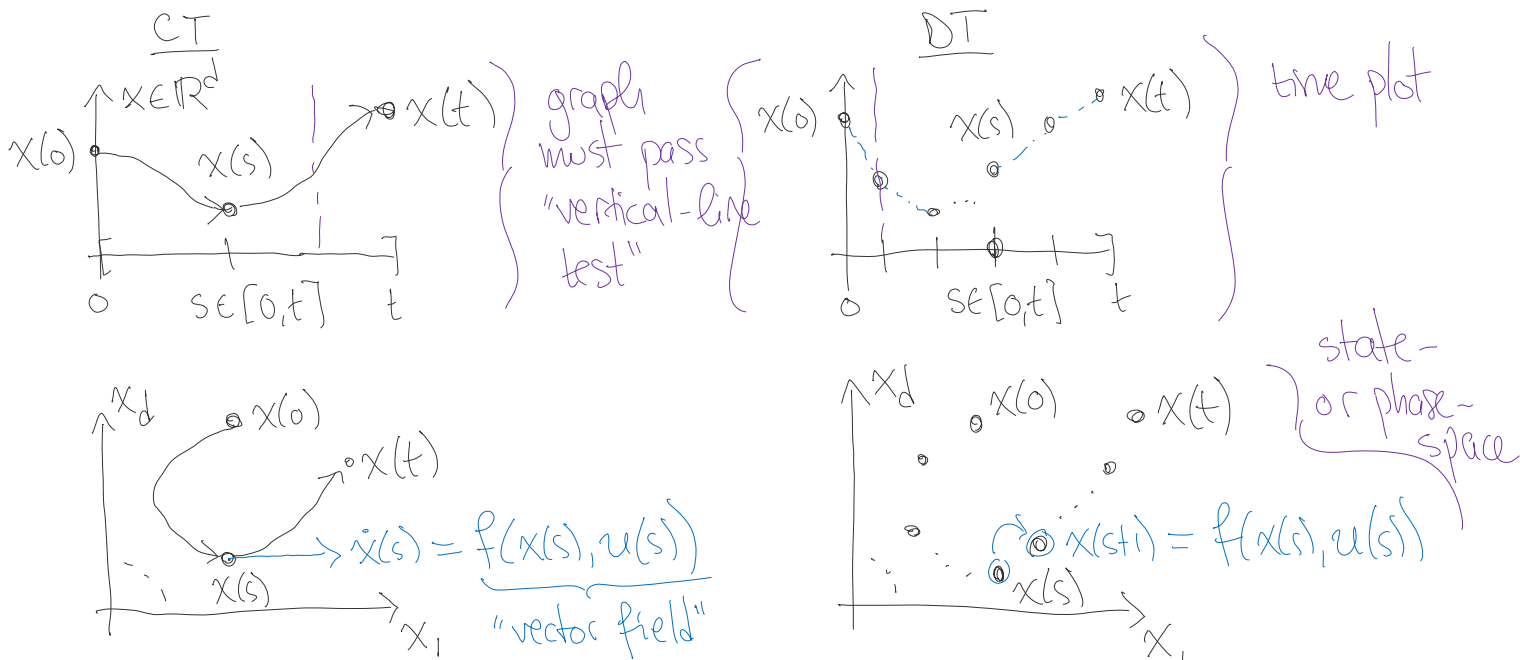 CT
x∈ℝᵈ
x(0)
x(s)
x(t)
0
s∈[0,t]
t
graph
must pass
"vertical-line
test"
DT
x(0)
x(s)
x(t)
0
s∈[0,t]
t
time plot
x_d
x(0)
x(t)
x(s)
ẋ(s) = f(x(s), u(s))
"vector field"
x₁
x_d
x(0)
x(t)
x(s+1) = f(x(s), u(s))
x(s)
x₁
state-
or phase-
space